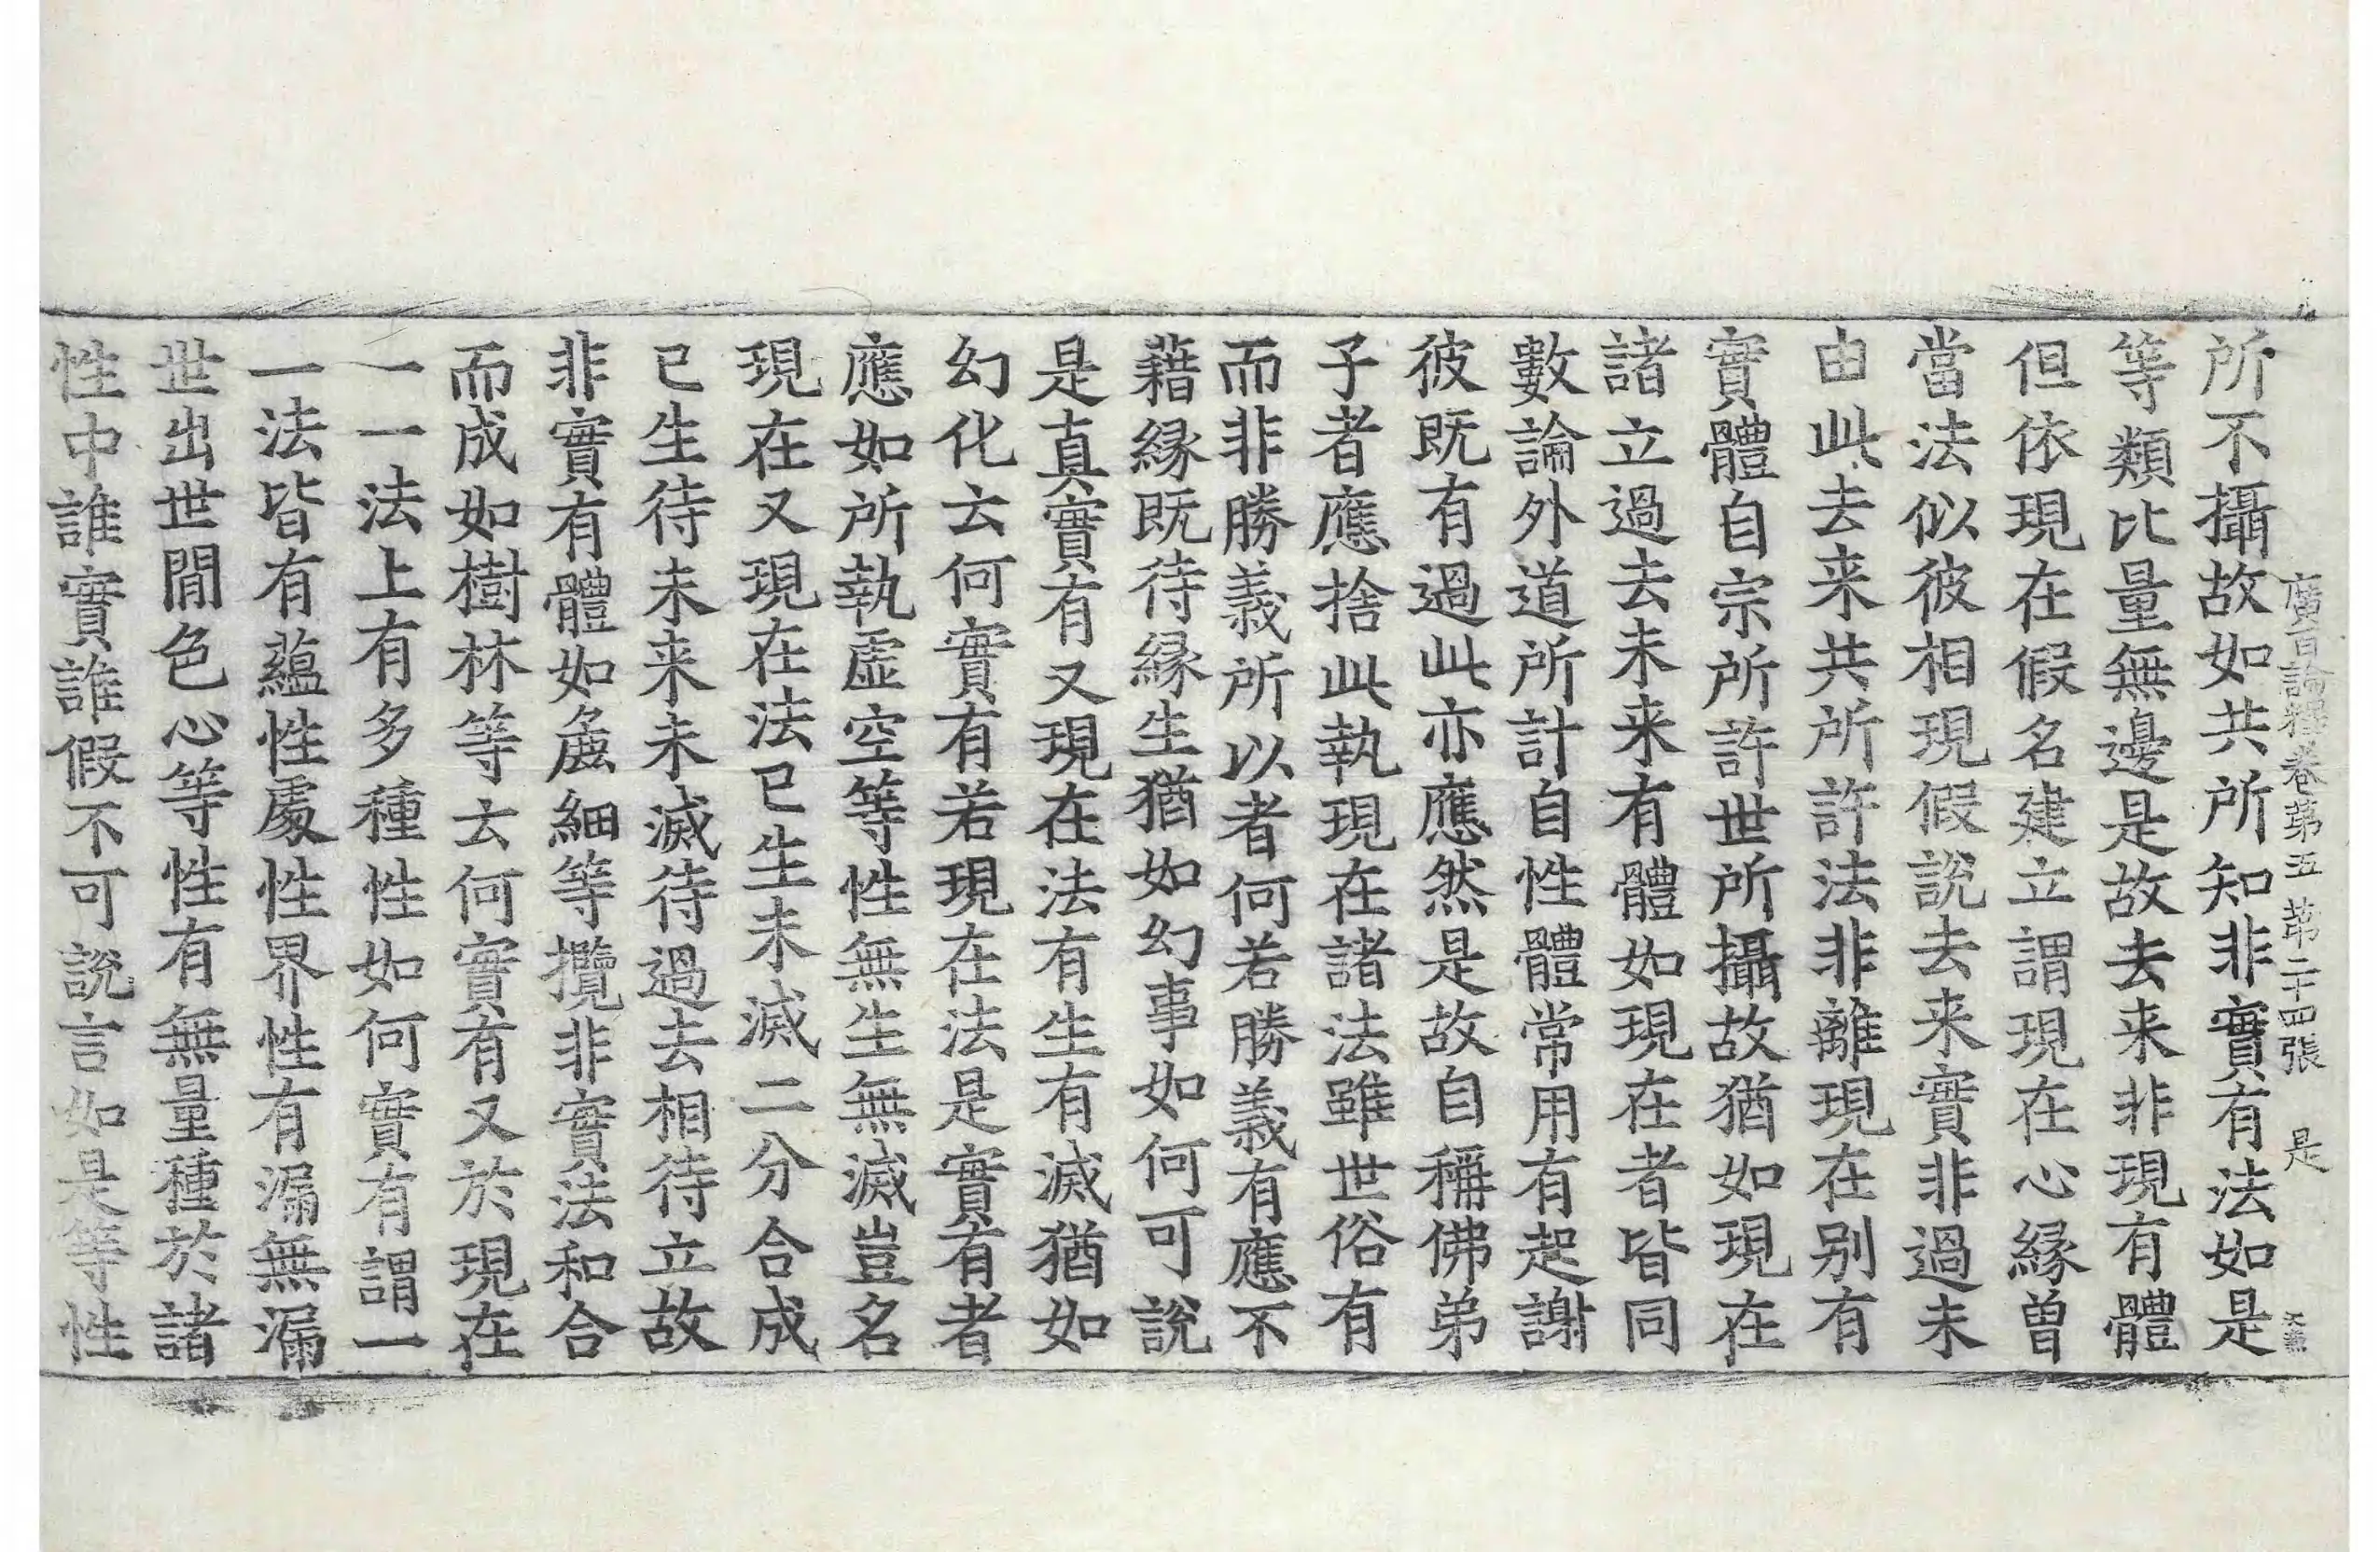 廣百論釋卷第五 第二十四張 是
所不攝故如共所知非實有法如是
等類比量無邊是故去来非現有體
但依現在假名建立謂現在心緣曾
當法似彼相現假說去来實非過未
由此去来共所許法非離現在别有
實體自宗所許世所攝故猶如現在
諸立過去未来有體如現在者皆同
數論外道所計自性體常用有起謝
彼既有過此亦應然是故自稱佛弟
子者應捨此執現在諸法雖世俗有
而非勝義所以者何若勝義有應不
藉緣既待緣生猶如幻事如何可說
是真實有又現在法有生有滅猶如
幻化云何實有若現在法是實有者
應如所執虛空等性無生無滅豈名
現在又現在法已生未滅二分合成
已生待未来未滅待過去相待立故
非實有體如麁細等攬非實法和合
而成如樹林等云何實有又於現在
一一法上有多種性如何實有謂一
一法皆有蘊性處性界性有漏無漏
世出世間色心等性有無量種於諸
性中誰實誰假不可說言如是等性